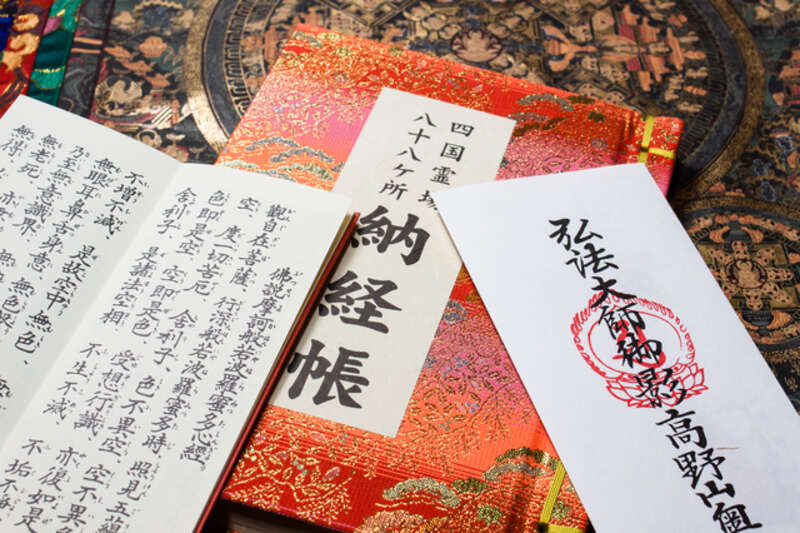 佛説摩訶般若波羅蜜多心経
觀自在菩薩、行深般若波羅蜜多時、照見五蘊
空、度一切苦厄、舍利子、色不異空、空不異
色即是空、空即是色、受想行識、亦復如是
舍利子、是諸法空相、不生不滅、不垢不
不增不減、是故空中、無色、
無眼耳鼻舌身意、無色
乃至無意識界、無
無老死、亦
無得、
四国霊場
八十八ヶ所
納経帳
弘法大師御影高野山奥